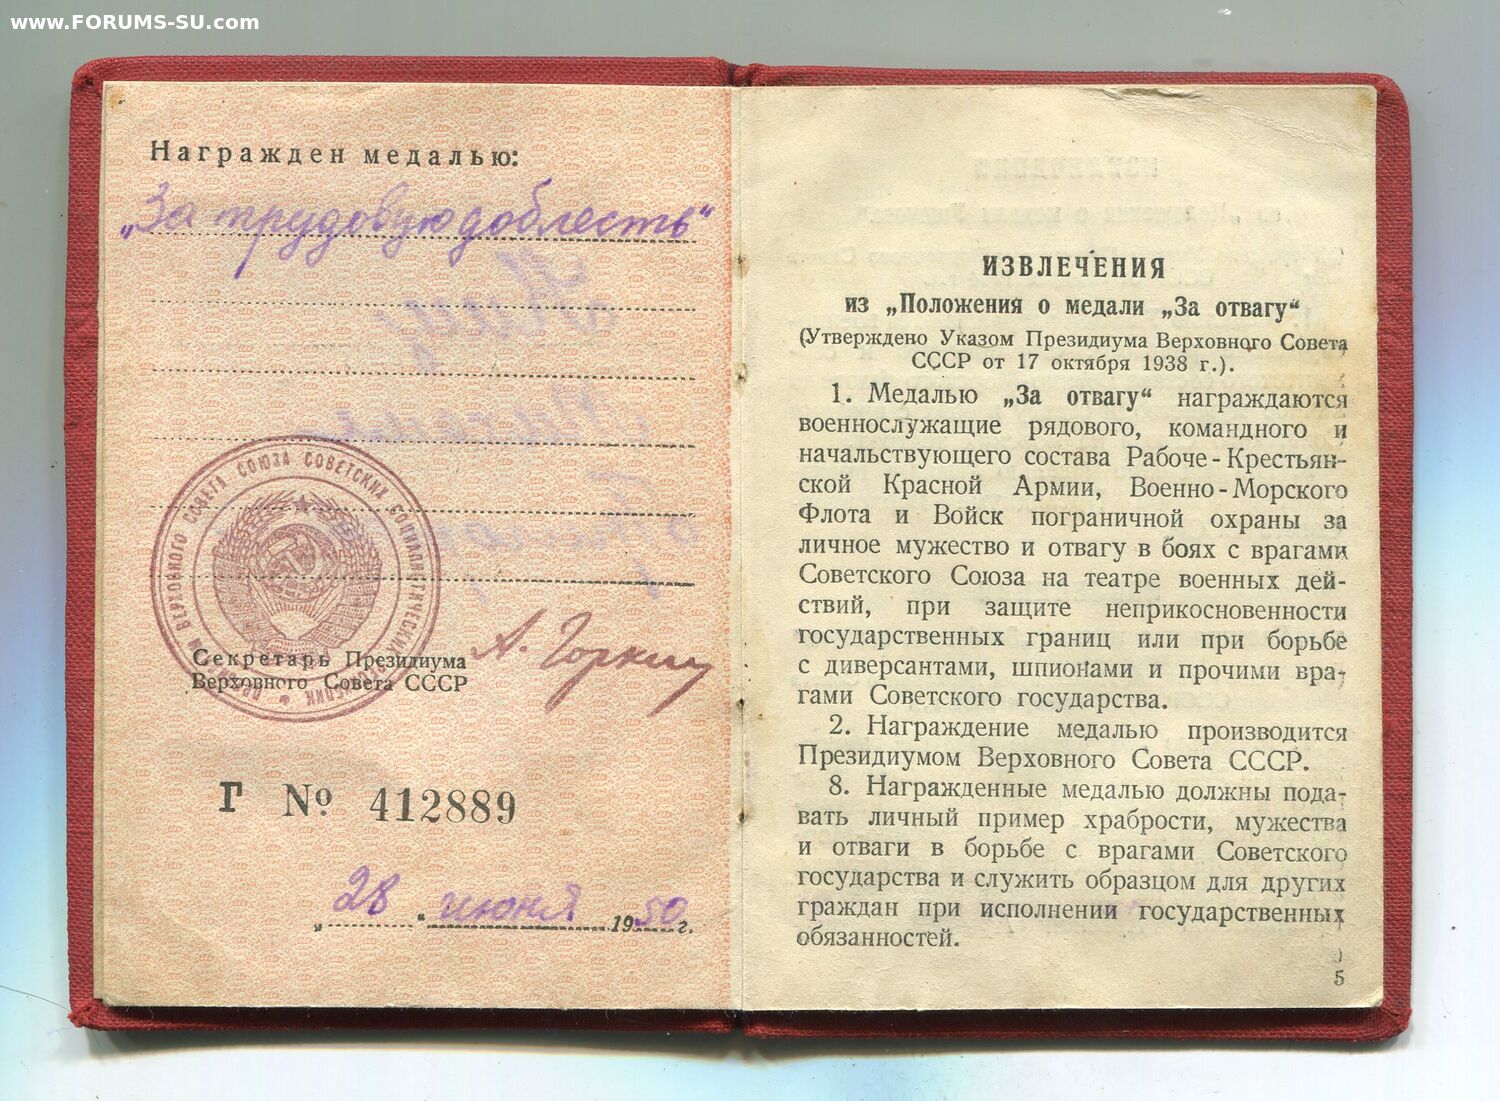 www.FORUMS-SU.com
Награжден медалью:
„За трудовую доблесть“
ВЕРХОВНОГО СОВЕТА СОЮЗА СОВЕТСКИХ СОЦИАЛИСТИЧЕСКИХ
Секретарь Президиума
Верховного Совета СССР
А. Горкин
Г № 412889
„28“ июня 1950 г.
ИЗВЛЕЧЕНИЯ
из „Положения о медали „За отвагу“
(Утверждено Указом Президиума Верховного Совета
СССР от 17 октября 1938 г.).
1. Медалью „За отвагу“ награждаются
военнослужащие рядового, командного и
начальствующего состава Рабоче-Крестьян-
ской Красной Армии, Военно-Морского
Флота и Войск пограничной охраны за
личное мужество и отвагу в боях с врагами
Советского Союза на театре военных дей-
ствий, при защите неприкосновенности
государственных границ или при борьбе
с диверсантами, шпионами и прочими вра-
гами Советского государства.
2. Награждение медалью производится
Президиумом Верховного Совета СССР.
8. Награжденные медалью должны пода-
вать личный пример храбрости, мужества
и отваги в борьбе с врагами Советского
государства и служить образцом для других
граждан при исполнении государственных
обязанностей.
5